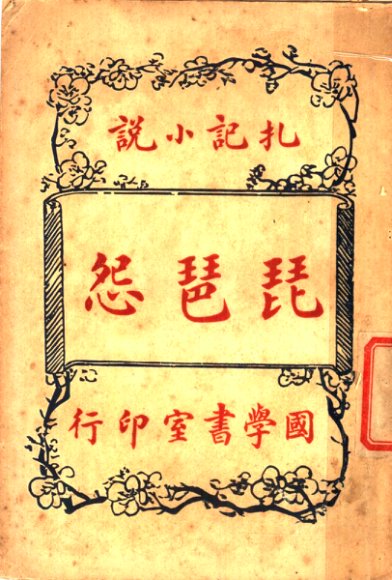 扎記小説
琵琶怨
國學書室印行